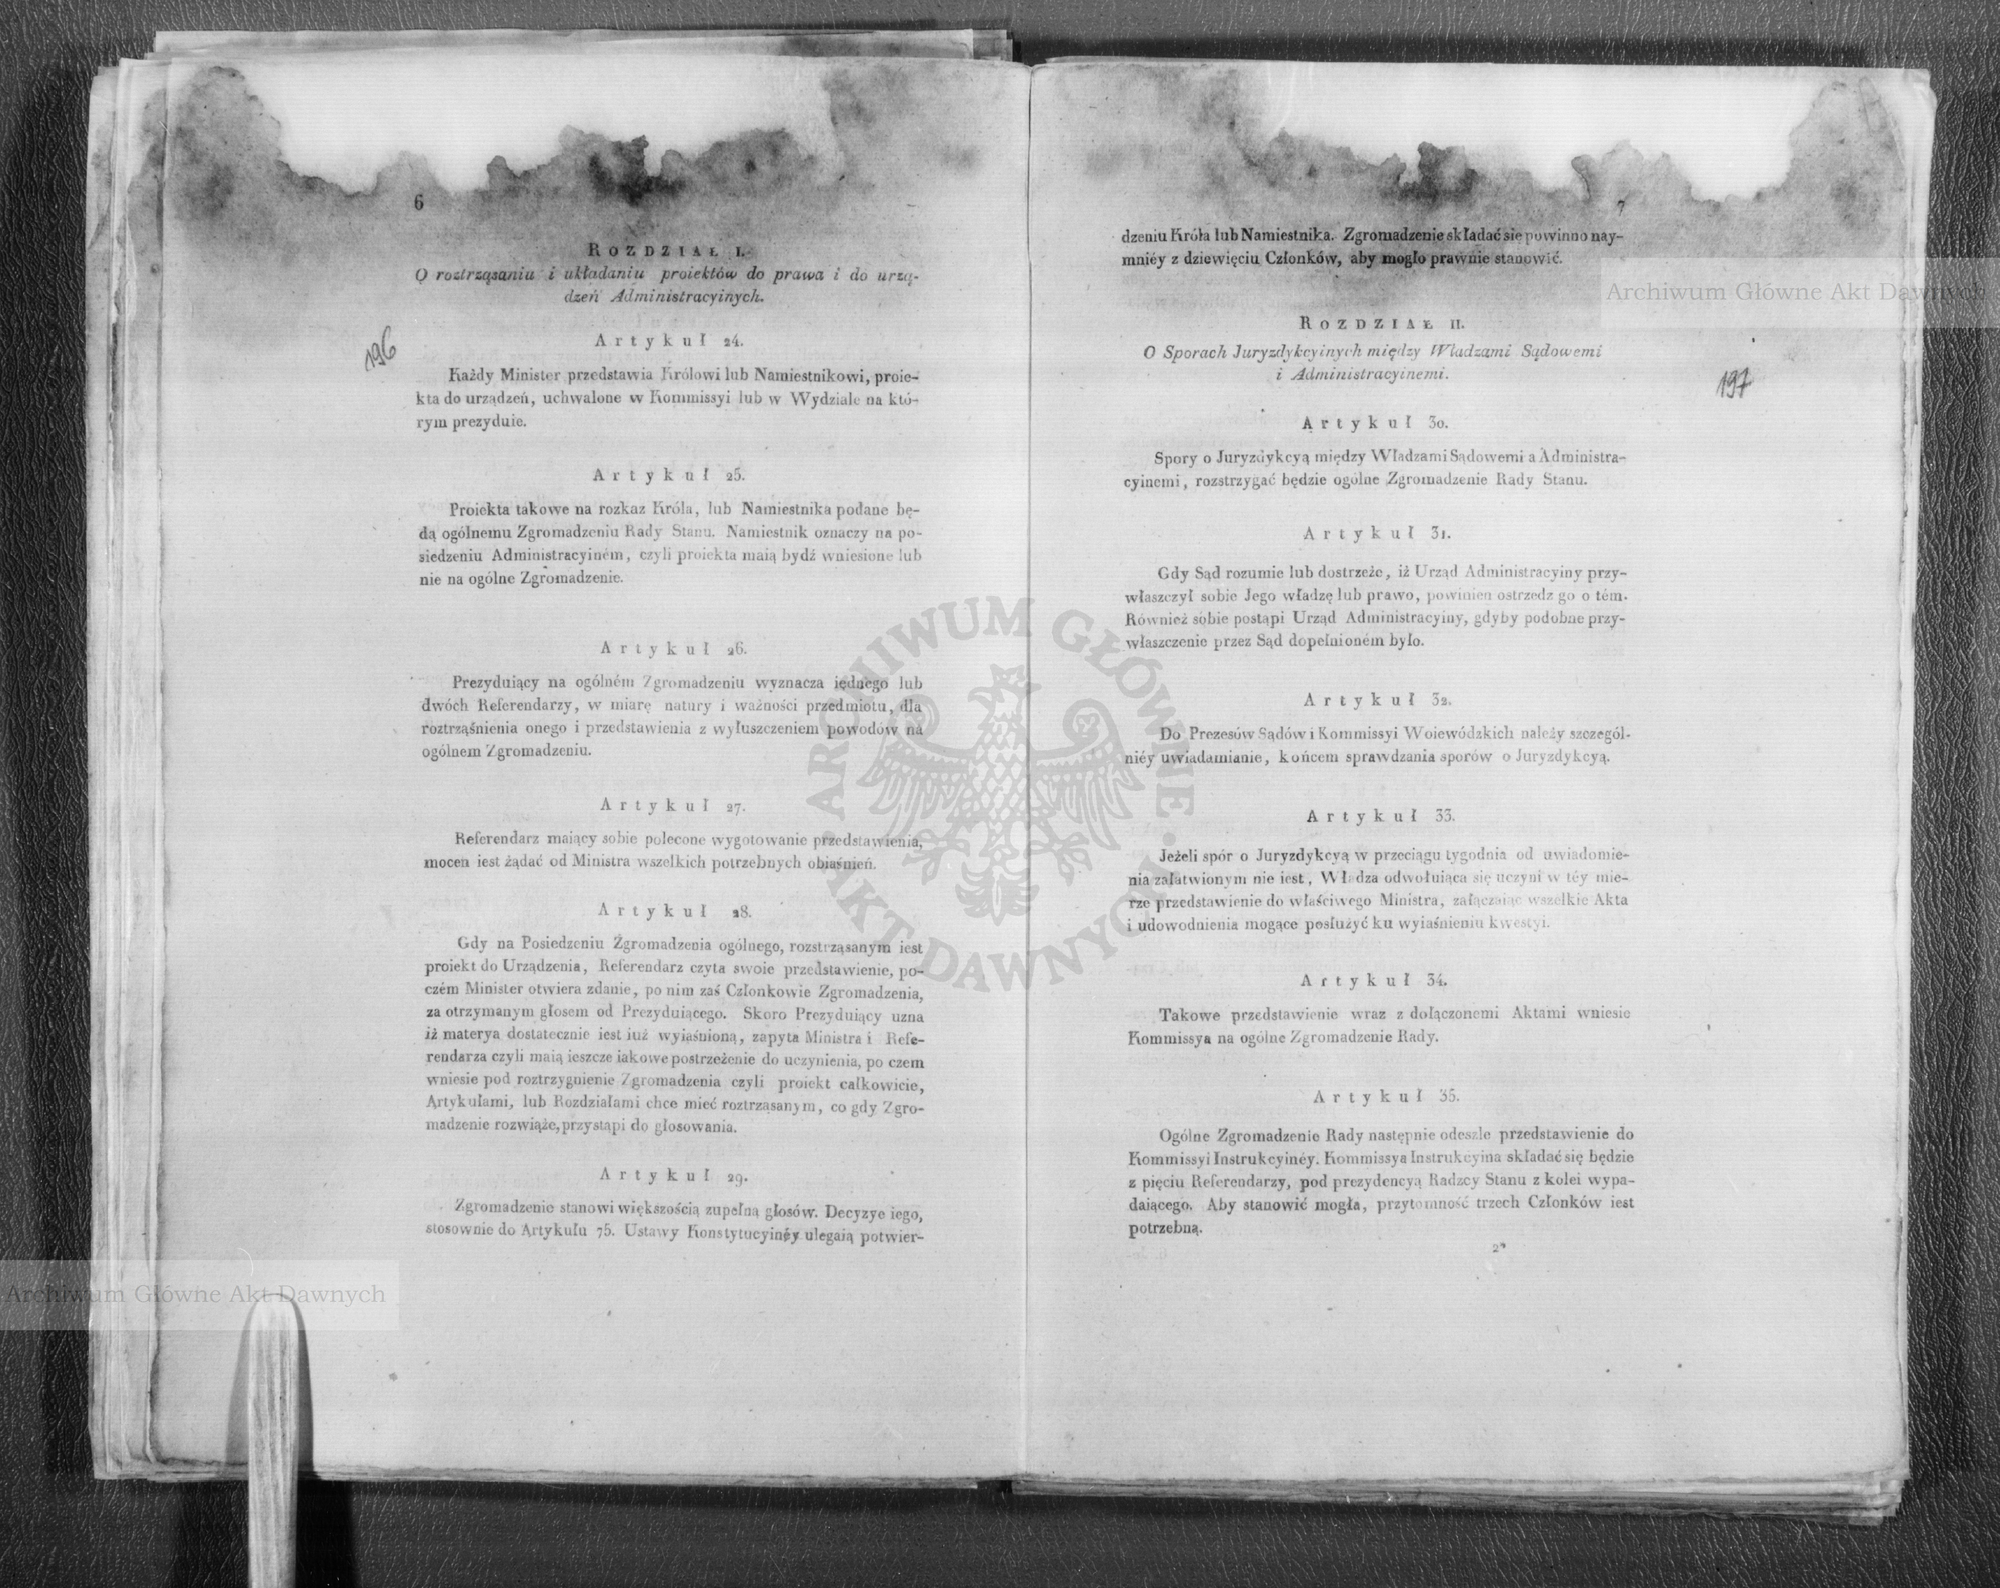 6
ROZDZIAŁ I.
O roztrząsaniu i układaniu proiektów do prawa i do urzą-
dzeń Administracyinych.
196
Artykuł 24.
Każdy Minister przedstawia Królowi lub Namiestnikowi, proie-
kta do urządzeń, uchwalone w Kommissyi lub w Wydziale na któ-
rym prezyduie.
Artykuł 25.
Proiekta takowe na rozkaz Króla, lub Namiestnika podane bę-
dą ogólnemu Zgromadzeniu Rady Stanu. Namiestnik oznaczy na po-
siedzeniu Administracyiném, czyli proiekta maią bydź wniesione lub
nie na ogólne Zgromadzenie.
Artykuł 26.
Prezyduiący na ogólném Zgromadzeniu wyznacza iędnego lub
dwóch Referendarzy, w miarę natury i ważności przedmiotu, dla
roztrząśnienia onego i przedstawienia z wyłuszczeniem powodów na
ogólnem Zgromadzeniu.
Artykuł 27.
Referendarz maiący sobie polecone wygotowanie przedstawienia,
mocen iest żądać od Ministra wszelkich potrzebnych obiaśnień.
Artykuł 28.
Gdy na Posiedzeniu Zgromadzenia ogólnego, rozstrząsanym iest
proiekt do Urządzenia, Referendarz czyta swoie przedstawienie, po-
czém Minister otwiera zdanie, po nim zaś Członkowie Zgromadzenia,
za otrzymanym głosem od Prezyduiącego. Skoro Prezyduiący uzna
iż materya dostatecznie iest iuż wyiąśnioną, zapyta Ministra i Refe-
rendarza czyli maią ieszcze iakowe postrzeżenie do uczynienia, po czem
wniesie pod roztrzygnienie Zgromadzenia czyli proiekt całkowicie,
Artykułami, lub Rozdziałami chce mieć roztrząsanym, co gdy Zgro-
madzenie rozwiąże, przystąpi do głosowania.
Artykuł 29.
Zgromadzenie stanowi większością zupełną głosów. Decyzye iego,
stosownie do Artykułu 75. Ustawy Konstytucyinéy ulegaią potwier-
7
dzeniu Króla lub Namiestnika. Zgromadzenie składać sie powinno nay-
mniéy z dziewięciu Członków, aby mogło prawnie stanowić.
ROZDZIAŁ II.
O Sporach Juryzdykcyinych między Władzami Sądowemi
i Administracyinemi.
197
Artykuł 30.
Spory o Juryzdykcyą między Władzami Sądowemi a Administra-
cyinemi, rozstrzygać będzie ogólne Zgromadzenie Rady Stanu.
Artykuł 31.
Gdy Sąd rozumie lub dostrzeże, iż Urząd Administracyiny przy-
właszczył sobie Jego władzę lub prawo, powinien ostrzedz go o tém.
Również sobie postąpi Urząd Administracyiny, gdyby podobne przy-
właszczenie przez Sąd dopełnioném było.
Artykuł 32.
Do Prezesów Sądów i Kommissyi Woiewódzkich należy szczegól-
niéy uwiadamianie, końcem sprawdzania sporów o Juryzdykcyą.
Artykuł 33.
Jeżeli spór o Juryzdykcyą w przeciągu tygodnia od uwiadomie-
nia załatwionym nie iest, Władza odwołuiąca się uczyni w téy mie-
rze przedstawienie do właściwego Ministra, załączaiąc wszelkie Akta
i udowodnienia mogące posłużyć ku wyiaśnieniu kwestyi.
Artykuł 34.
Takowe przedstawienie wraz z dołączonemi Aktami wniesie
Kommissya na ogólne Zgromadzenie Rady.
Artykuł 35.
Ogólne Zgromadzenie Rady następnie odeszle przedstawienie do
Kommissyi Instrukcyinéy. Kommissya Instrukcyina składać się będzie
z pięciu Referendarzy, pod prezydencyą Radzcy Stanu z kolei wypa-
daiącego. Aby stanowić mogła, przytomność trzech Członków iest
potrzebną.
2*
Archiwum Główne Akt Dawnych
Archiwum Główne Akt Dawnych
ARCHIWUM GŁÓWNE AKT DAWNYCH